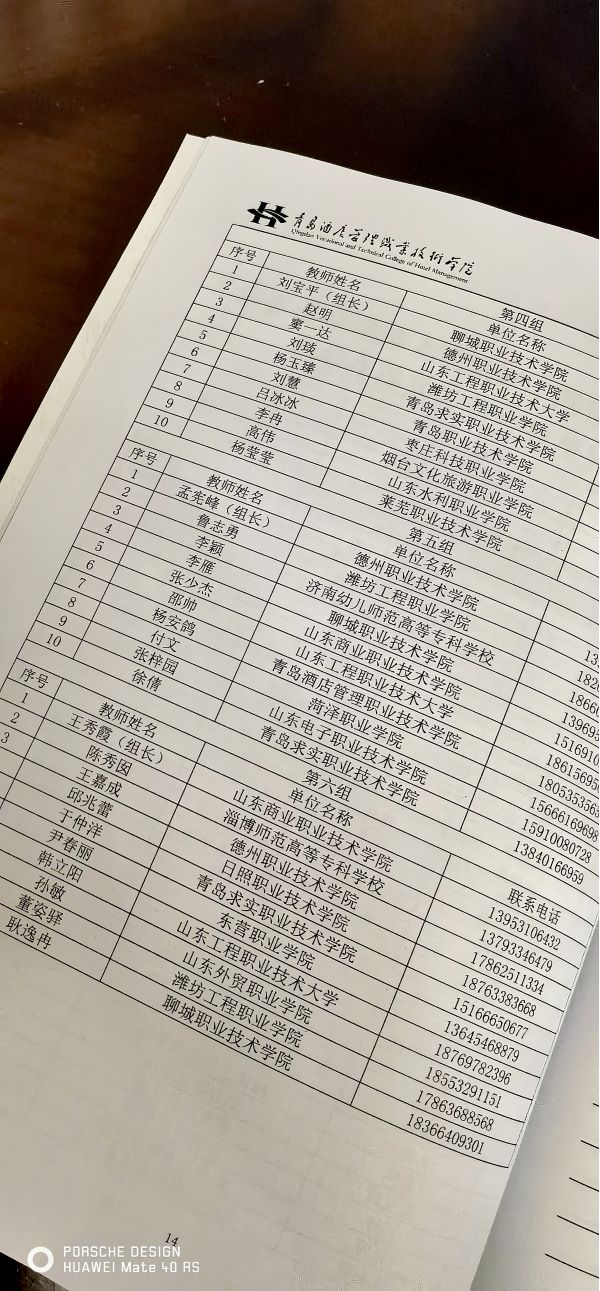 青岛酒店管理职业技术学院
Qingdao Vocational and Technical College of Hotel Management
第四组
序号 教师姓名 单位名称
1 刘宝平（组长） 聊城职业技术学院
2 赵明 德州职业技术学院
3 窦一达 山东工程职业技术大学
4 刘琰 潍坊工程职业学院
5 杨玉臻 青岛求实职业技术学院
6 刘慧 青岛职业技术学院
7 吕冰冰 枣庄科技职业学院
8 李冉 烟台文化旅游职业学院
9 高伟 山东水利职业学院
10 杨莹莹 莱芜职业技术学院
第五组
序号 教师姓名 单位名称
1 孟宪峰（组长） 德州职业技术学院
2 鲁志勇 潍坊工程职业学院
3 李颖 济南幼儿师范高等专科学校
4 李雁 聊城职业技术学院
5 张少杰 山东商业职业技术学院
6 邵帅 山东工程职业技术大学
7 杨安鸽 青岛酒店管理职业技术学院
8 付文 菏泽职业学院 18053535
9 张梓园 山东电子职业技术学院 15666169698
10 徐倩 青岛求实职业技术学院 15910080728
13840166959
第六组
序号 教师姓名 单位名称 联系电话
1 王秀霞（组长） 山东商业职业技术学院 13953106432
2 陈秀囡 淄博师范高等专科学校 13793346479
3 王嘉成 德州职业技术学院 17862511334
邱兆蕾 日照职业技术学院 18763383668
于仲洋 青岛求实职业技术学院 15166650677
尹春丽 东营职业学院 13645468879
韩立阳 山东工程职业技术大学 18769782396
孙敏 山东外贸职业学院 18553291151
董姿驿 潍坊工程职业学院 17863688568
耿逸冉 聊城职业技术学院 18366409301
14
PORSCHE DESIGN
HUAWEI Mate 40 RS